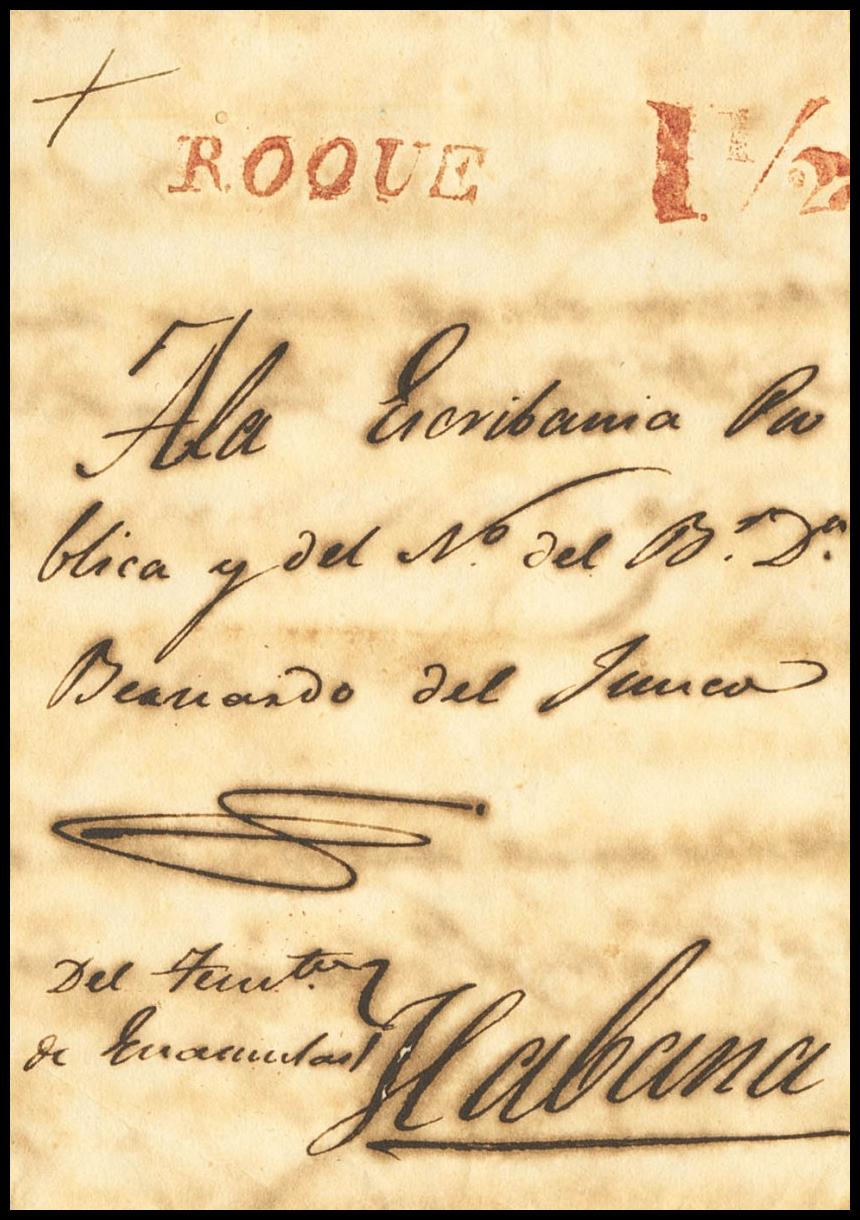 ROQUE 1 1/2
A la Escribania Pu
blica y del N.º del B.r D.n
Bernardo del Junco
Del Tent.te
de Guamutas
Habana